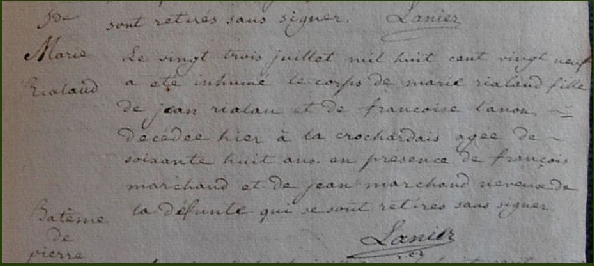 De sont retires sans signer. Lanier
Marie Le vingt trois juillet mil huit cent vingt neuf
Rialaud a été inhumé le corps de marie rialaud fille
de jean rialau et de francoise tanon =
decedée hier à la crochardais agee de -
soixante huit ans en presence de françois
marchand et de jean marchand neveux de
la défunte qui se sont retires sans signer
Batême
de Lanier
pierre